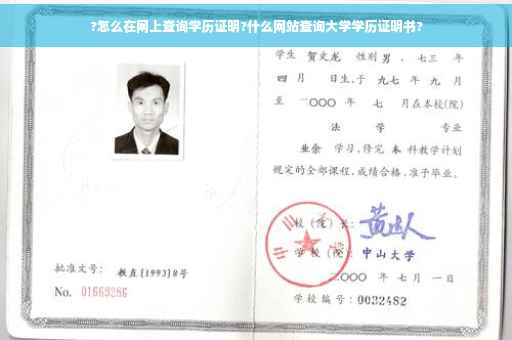 ?怎么在网上查询学历证明?什么网站查询大学学历证明书?
学生 贺文龙 性别 男 、七三 年
四 月 日生,于 九七 年 九 月
至 二〇〇〇 年 七 月在本校(院)
法 学 专业
业余 学习,修完 本 科教学计划
规定的全部课程,成绩合格,准予毕业。
校(院)长:
学校(院): 中山大学
二〇〇〇 年 七 月 一 日
批准文号: 教直[1993]8号
No. 01669286
学校编号: 0032482